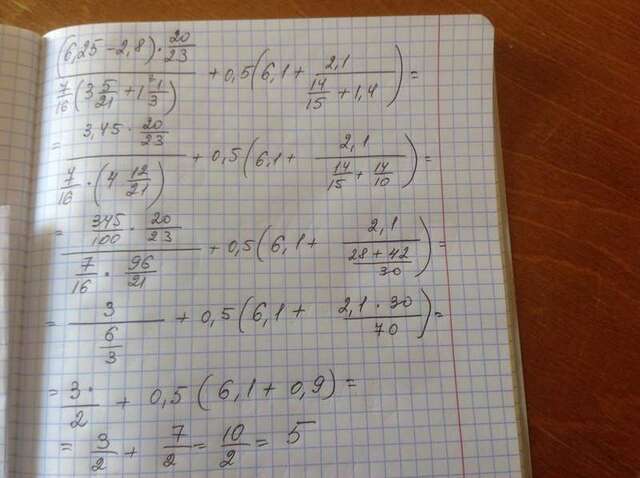 ((6,25 - 2,8) · 20/23) / (7/16 (3 5/21 + 1 1/3)) + 0,5 (6,1 + 2,1 / (14/15 + 1,4)) =
= (3,45 · 20/23) / (7/16 · (4 12/21)) + 0,5 (6,1 + 2,1 / (14/15 + 14/10)) =
= (345/100 · 20/23) / (7/16 · 96/21) + 0,5 (6,1 + 2,1 / ((28 + 42)/30)) =
= 3 / (6/3) + 0,5 (6,1 + (2,1 · 30)/70) =
= 3/2 + 0,5 (6,1 + 0,9) =
= 3/2 + 7/2 = 10/2 = 5